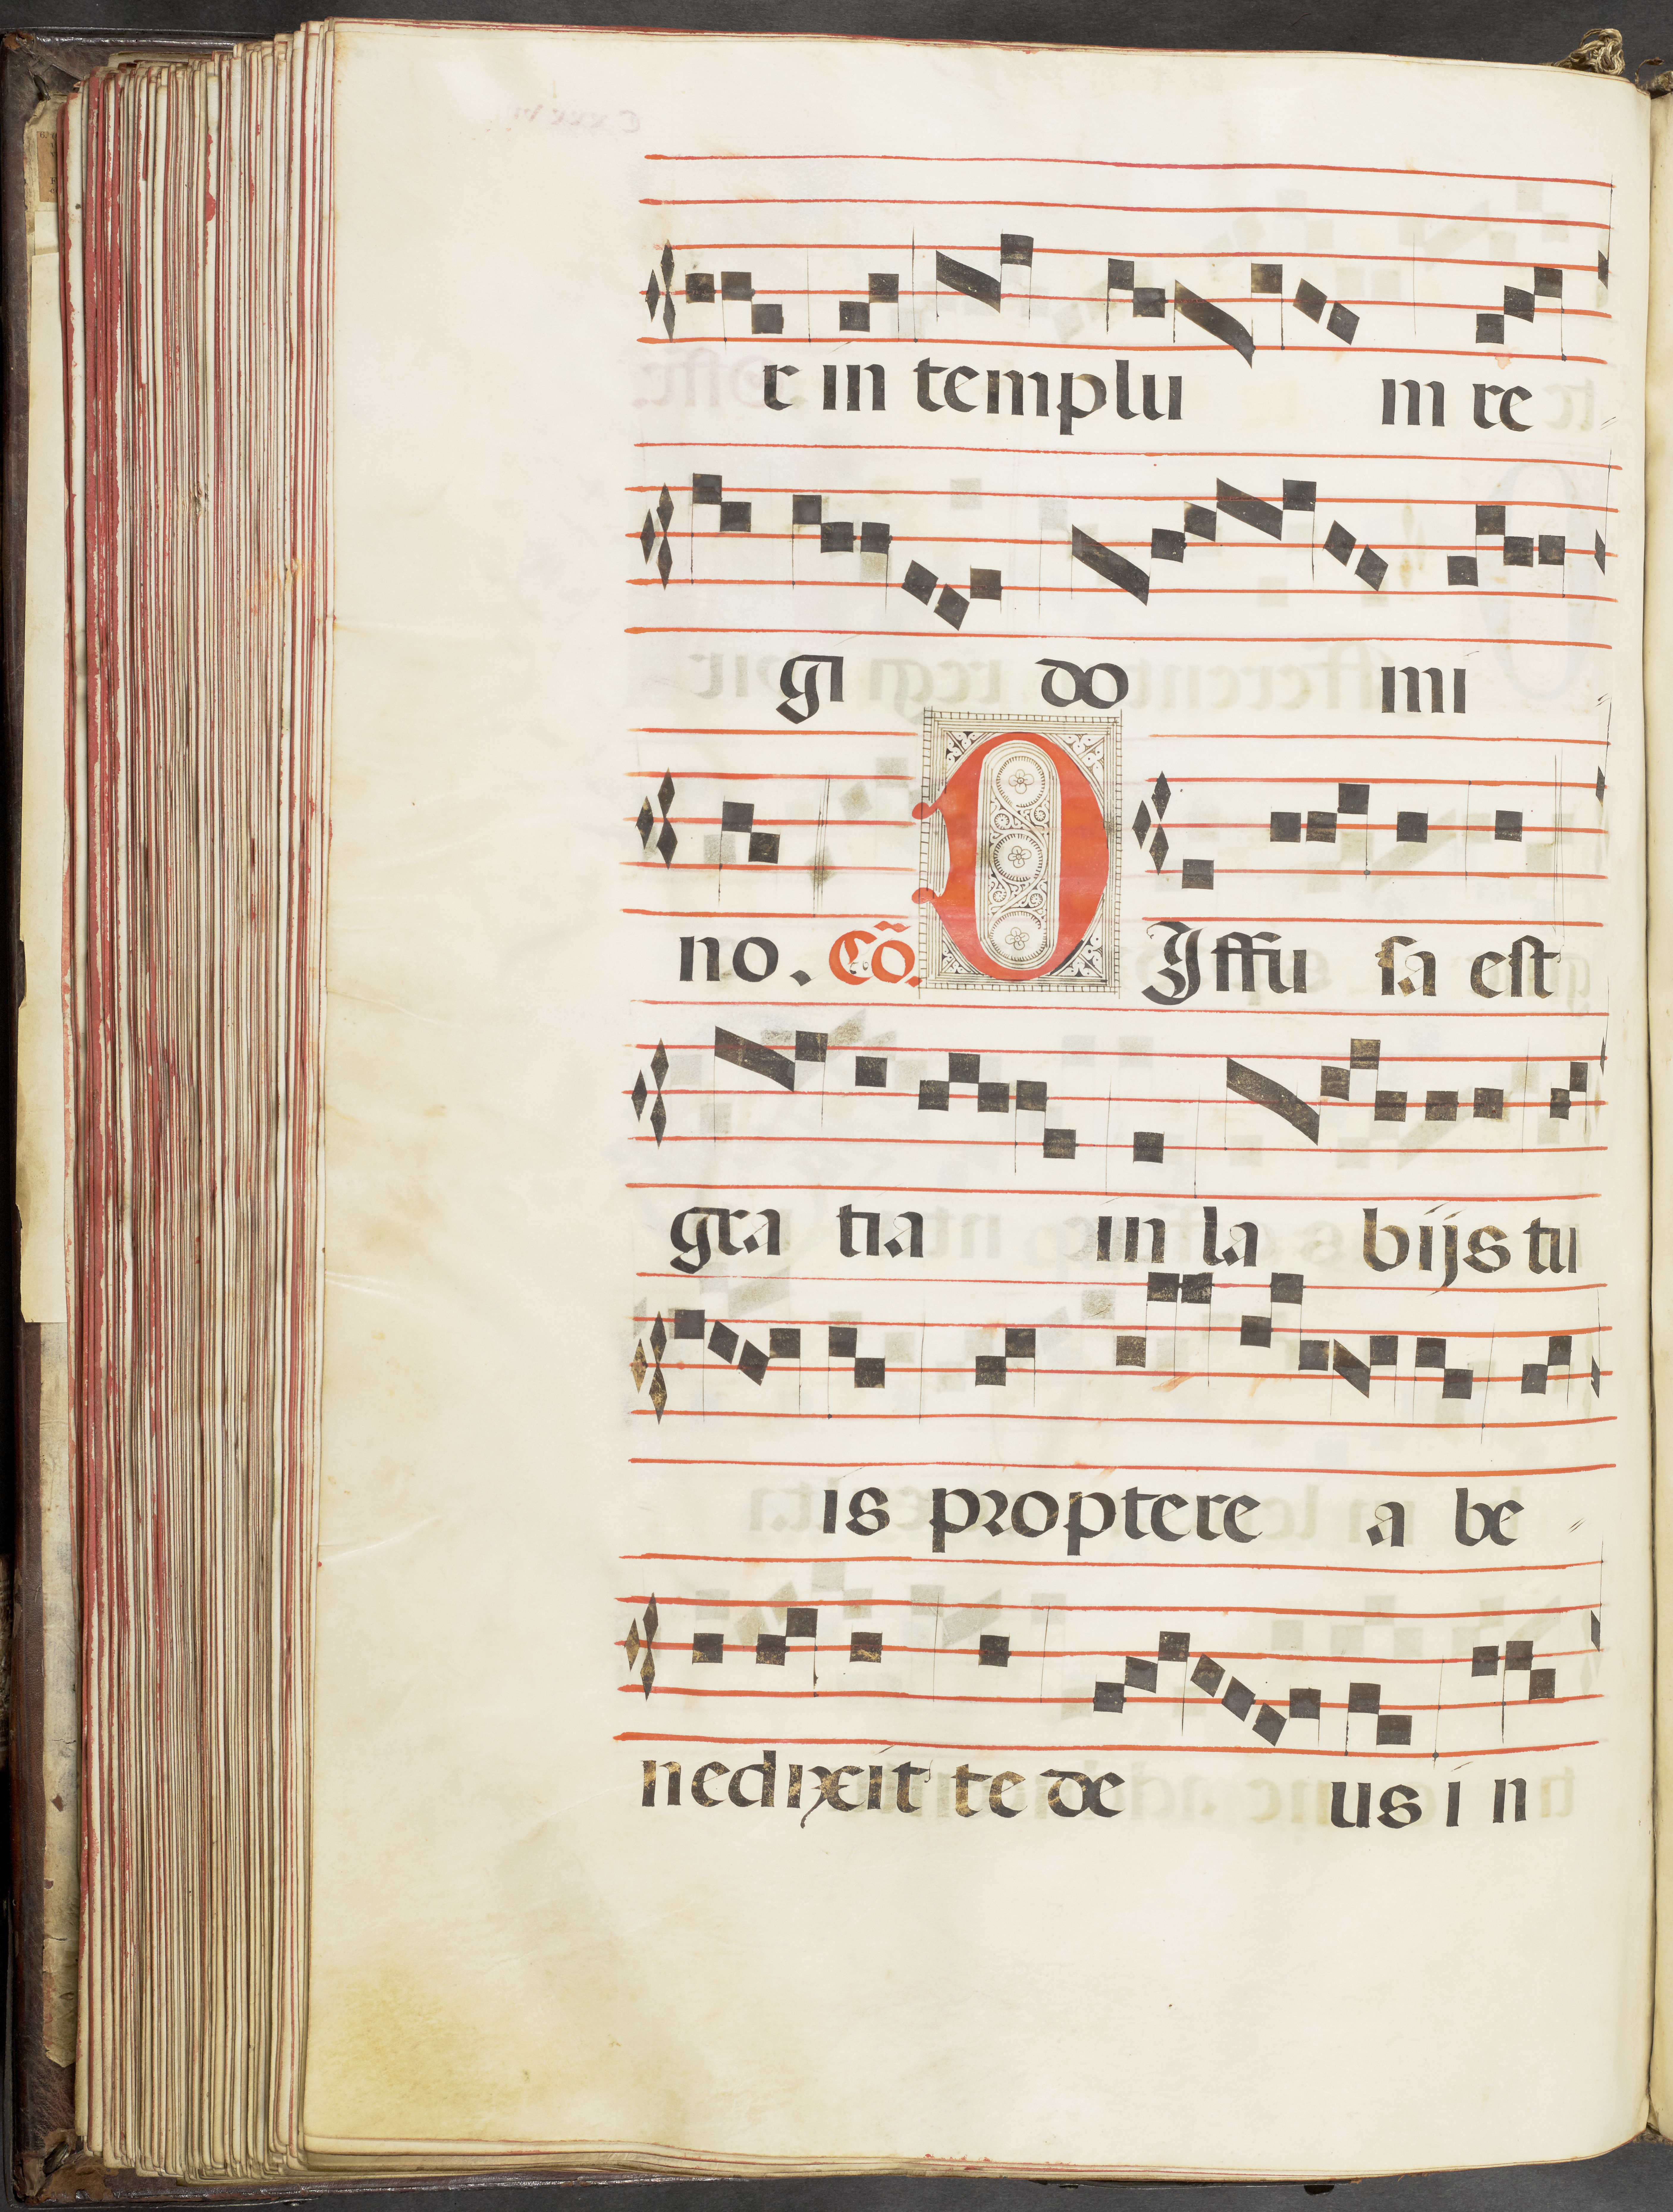 r in templu m re
gi do mi
no. Cõ. DIffu sa est
gra tia in la bijs tu
is proptere a be
nedixit te de us i n